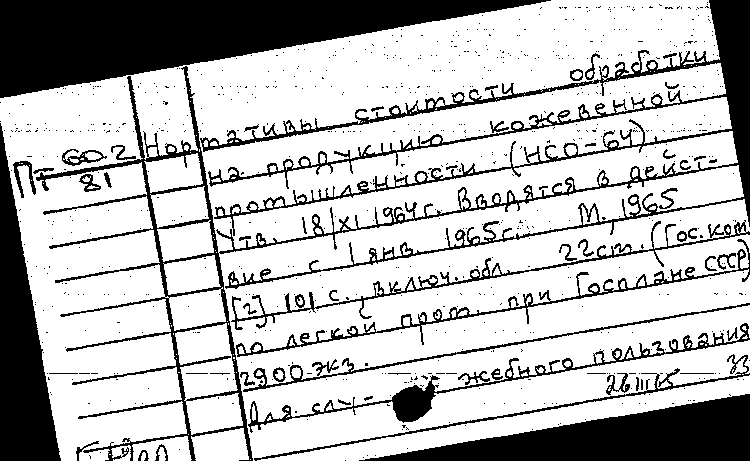 Пт 60.2 Нормативы стоимости обработки
81 на продукцию кожевенной
промышленности (НСО-64).
Утв. 18/XI 1964г. Вводятся в дейст-
вие с 1 янв. 1965г. М., 1965
[2], 101 с., включ. обл. 22 см. (Гос. ком
по легкой пром. при Госплане СССР)
2900 экз.
Для слу- жебного пользования
26 III 65 33